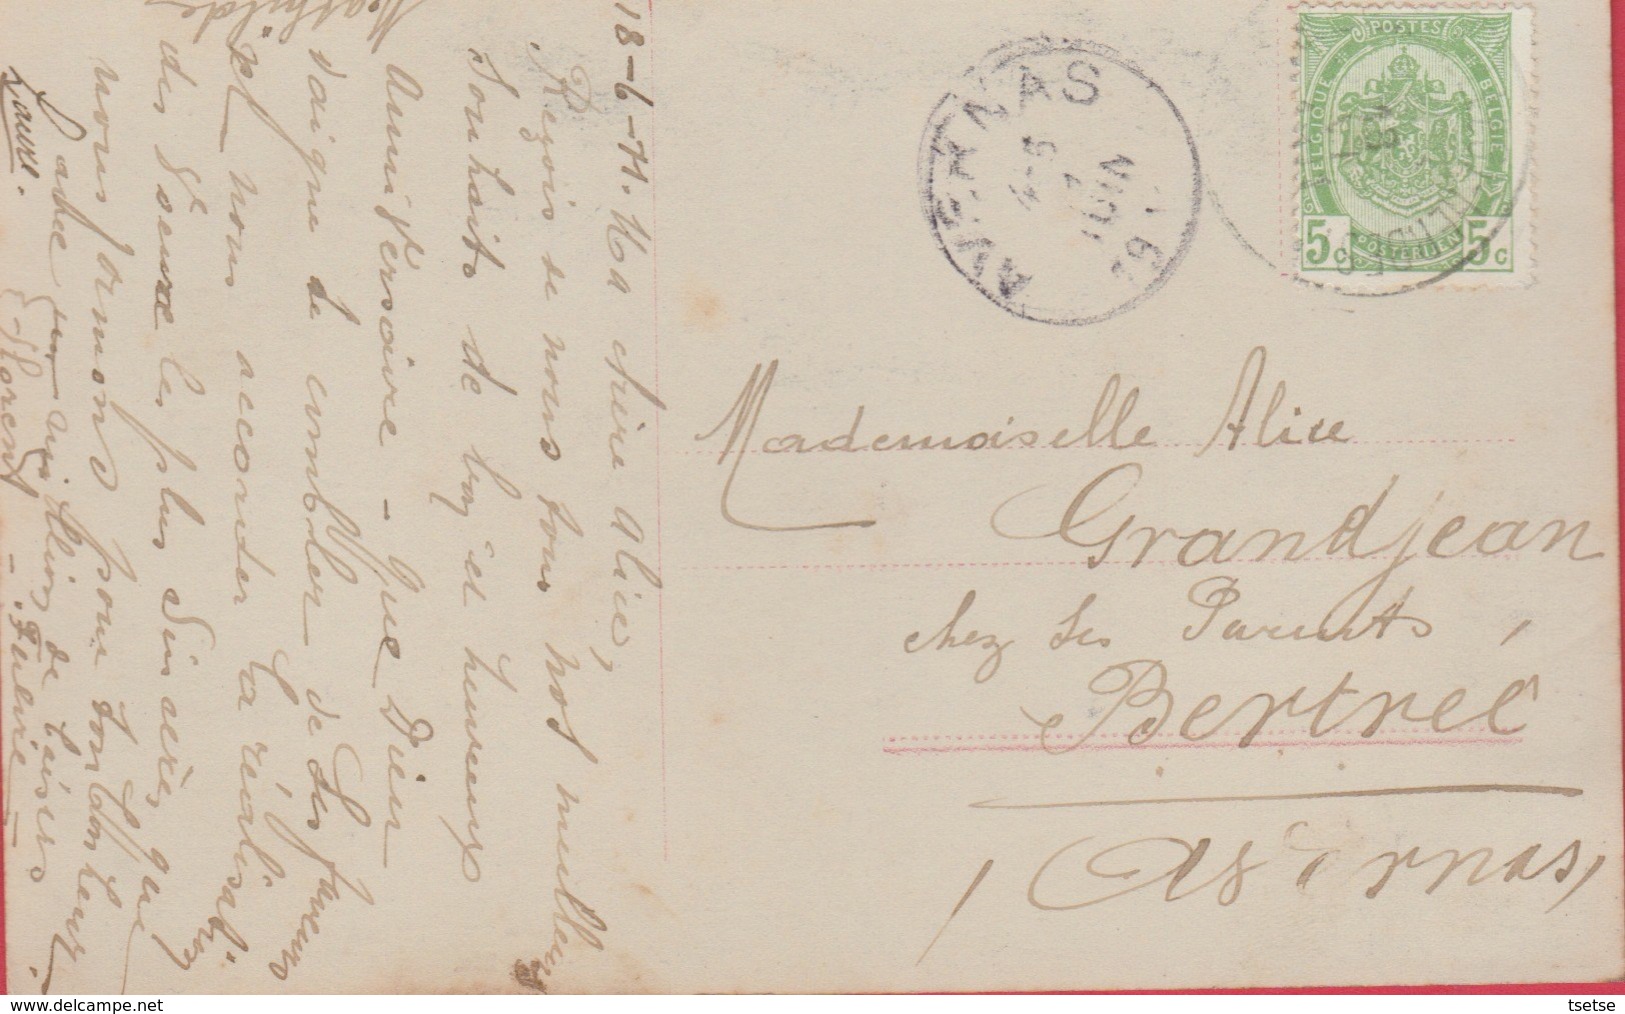 18-6-11. Ma chère Alice,
Reçois de nous tous nos meilleurs
Souhaits de bon et heureux
Anniversaire - que Dieu
daigne te combler de Ses faveurs
et nous accorder la réalisat
des Vœux les plus Sincères que
nous formons pour ton bonheur
Laure.
un million de baisers
Florent - Fulvie -
Mathilde
AVERNAS
4-5
JUIN
POSTES
BELGIQUE
BELGIE
5c POSTERIJEN 5c
Mademoiselle Alice
Grandjean
chez Ses Parents,
Bertrée
(Avernas)
tsetse